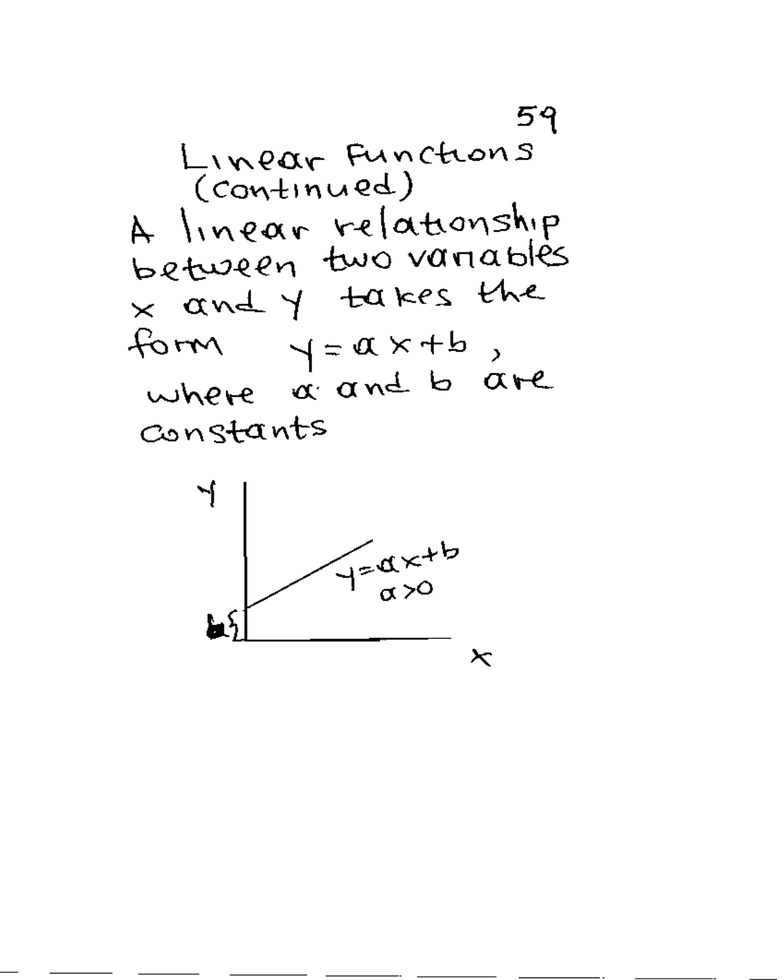 59
Linear Functions
(continued)
A linear relationship
between two variables
x and y takes the
form y=ax+b,
where a and b are
constants
y
y=ax+b
a>0
b{
x